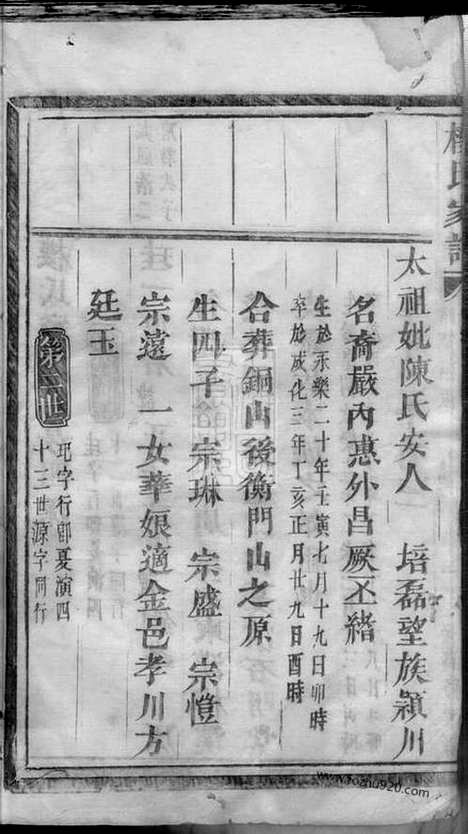 楊氏家譜
太祖妣陳氏安人 培磊望族潁川
名裔嚴內惠外昌厥丕緒
生於永樂二十年壬寅七月十九日卯時
卒於成化三年丁亥正月廿九日酉時
合葬銅山後衡門山之原
生四子 宗琳 宗盛 宗愷
宗遠 一女華娘適金邑孝川方
廷玉
第二世
玘字行郎夏演四
十三世源字同行
www.foznu920.com